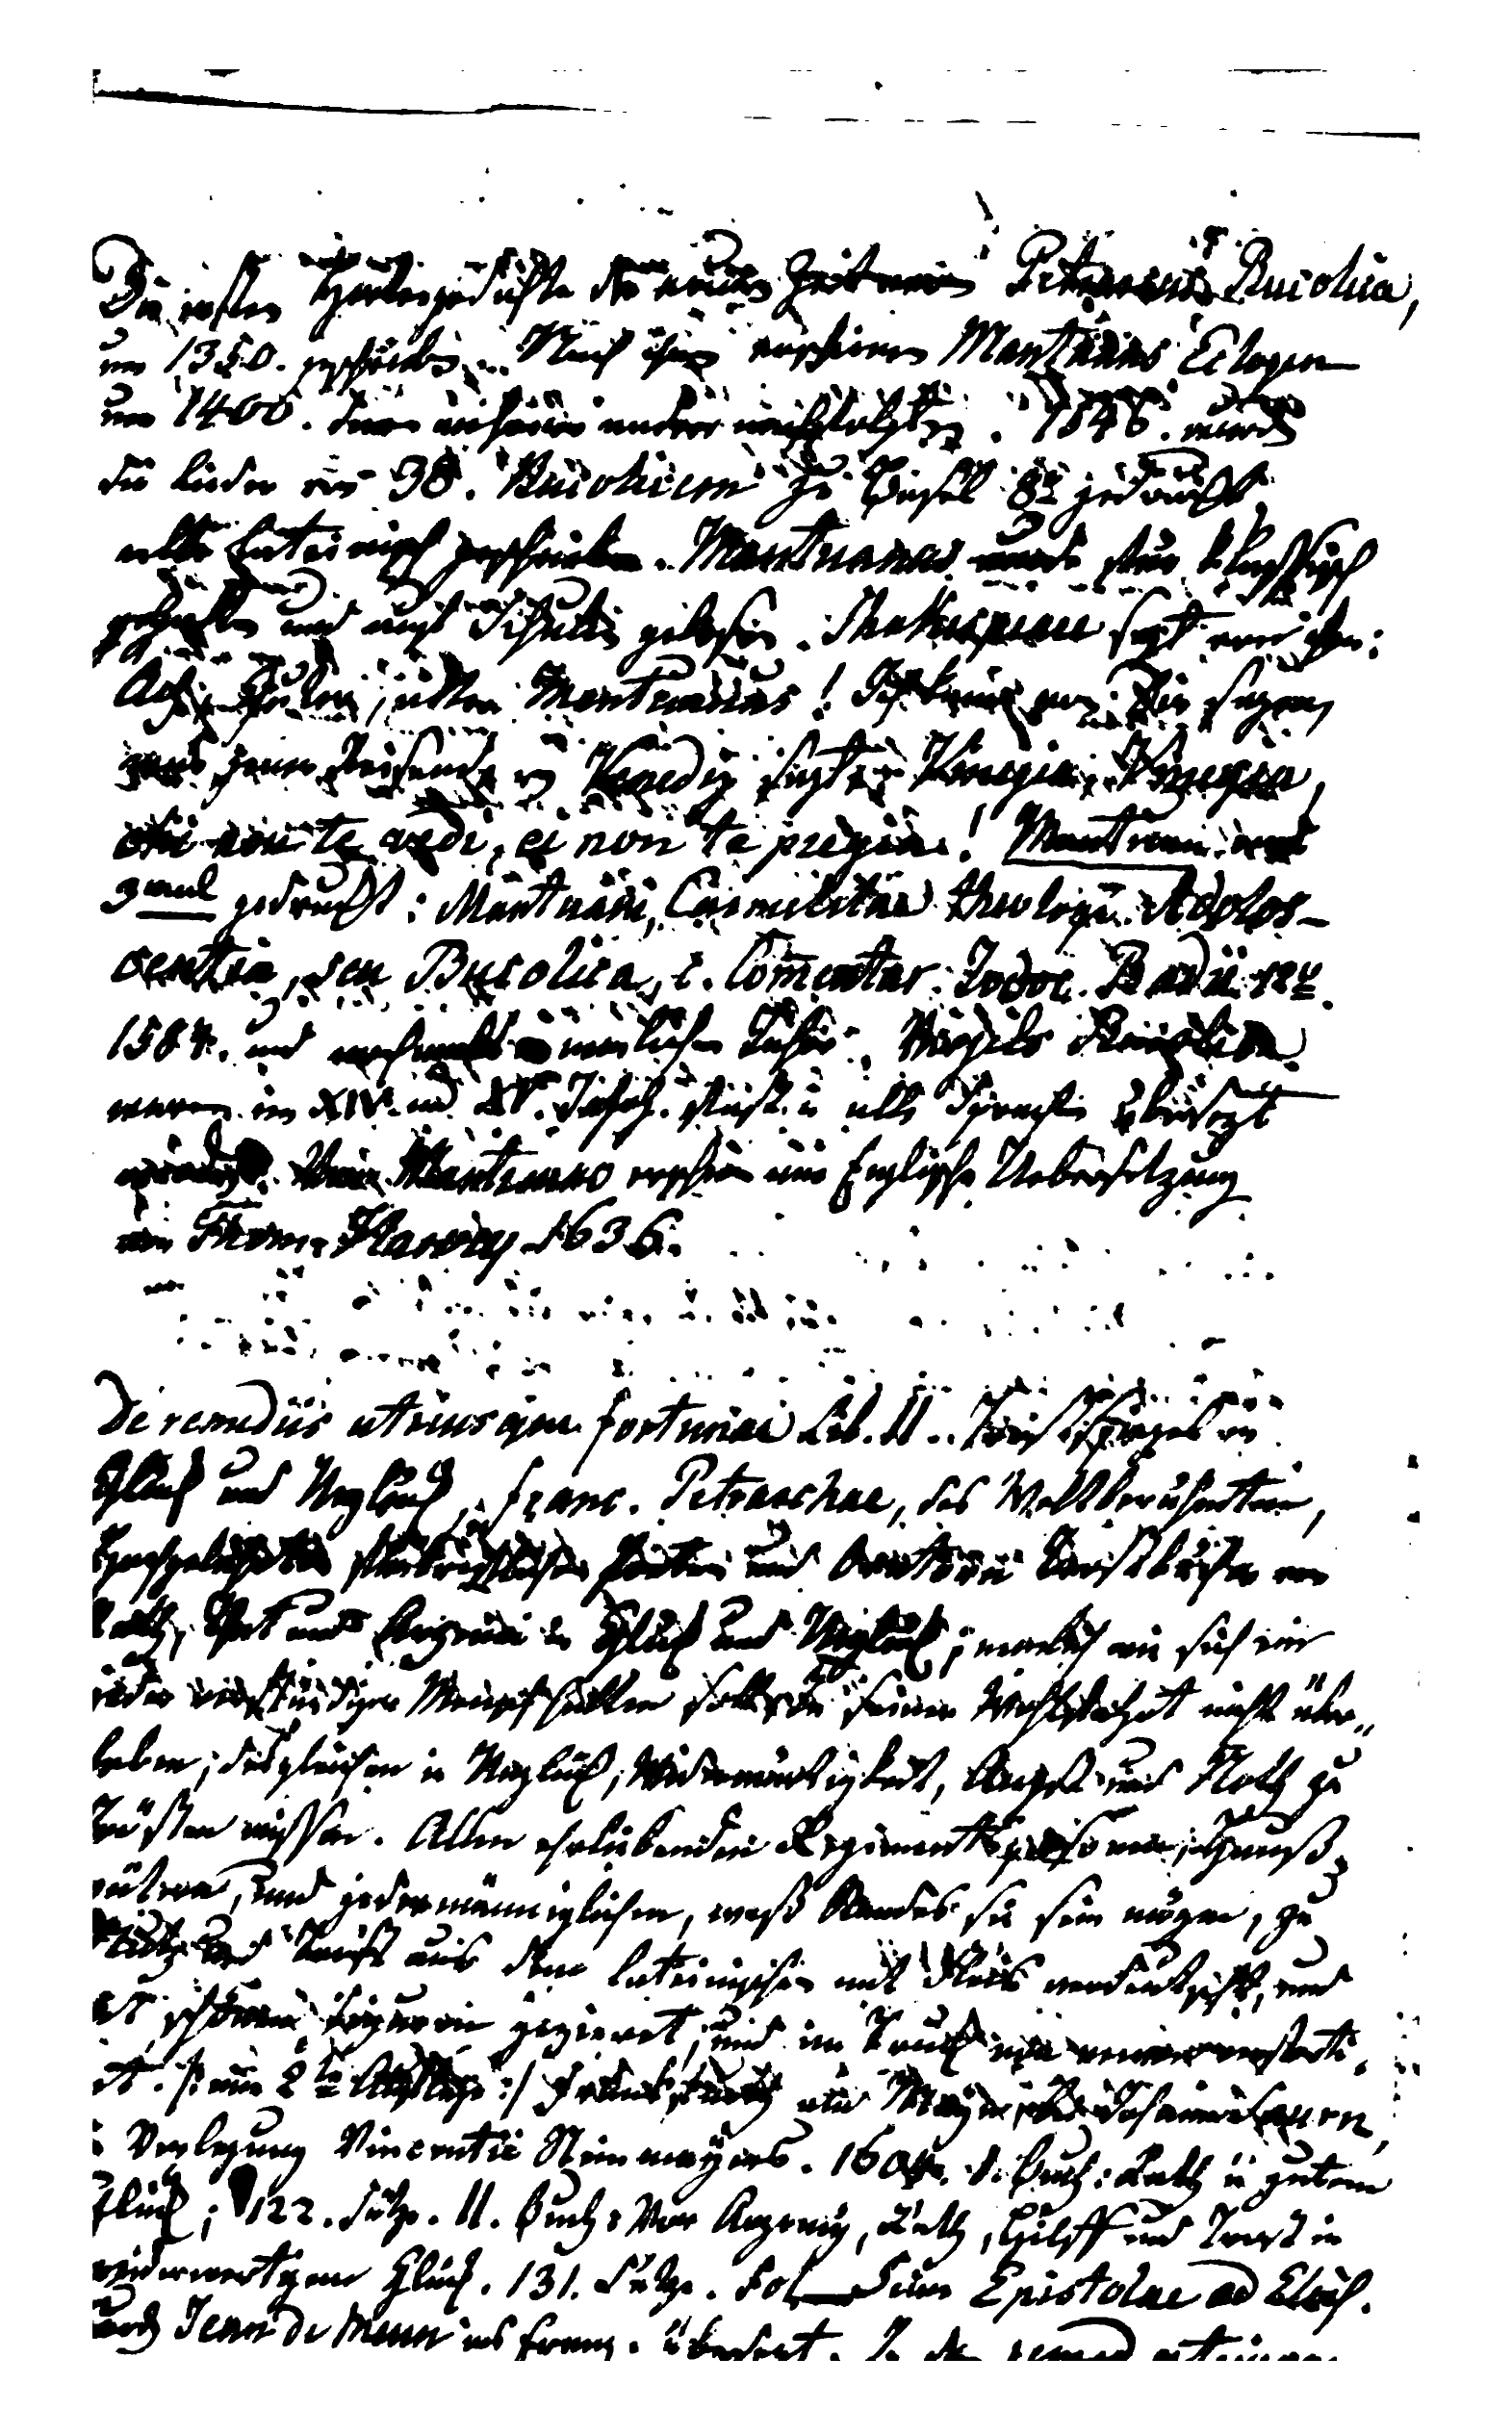 Die ersten Hirtengedichte der neuen Zeit waren Petrarcas Bucolica,
um 1350. geschrieben. Nach ihm erschienen Mantuans Eclogen
um 1400. denen andere nachfolgten. 1546. wurden
die Lieder von 38. Bucolicern zu Basel 8° gedruckt
alle lateinisch geschrieben. Mantuanus wurde für klassisch
gehalten und auf Schulen gelesen. Shakespeare sagt von ihm:
Ach, guter, alter Mantuanus! Ich kann von Dir sagen,
was jener Reisende von Venedig sagte: Venegia, Venegia,
chi non te vedi, ei non te pregia! Mantuan ward
3mal gedruckt: Mantuani, Carmelitae theologi Adoles-
centia, seu Bucolica, c. Comentar. Jodoc. Badii. 12°.
1584. und nochmals im nämlichen Jahre. Virgils Bucolica
waren im XIV. und XV. Jahrh. fast in alle Sprachen übersezt
worden. Von Mantuano erschien eine Englische Uebersetzung
von Thom. Harvey 1636.
De remediis utriusque fortunae Lib. II. Trostspiegel in
Glück und Unglück, Franc. Petrarchae, des Weltberühmten,
Hochgelehrten fürtrefflichen Poeten und Oratorn Trostbücher von
Rath, That und Arzenei in Glück und Unglück; nemlich wie sich ein
ieder verständiger Mensch halten soll, in seiner Wohlfahrt nicht über„
heben; desgleichen in Unglück, Widerwärtigkeit, Angst und Noth zu
trösten wissen. Allen ehrliebenden Regimentspersonen, Hauß
vätern, und jedermänniglichen, weß Standes sie sein mögen, zu
Nutz und Trost aus dem lateinischen mit Fleis verdeutscht, und
mit schönen Figuren gezieret, und im Truck nie
/: eine 2te Auflage :/ Frankfurth am Mayn, bei Johann Sauern,
in Verlegung Vincentii Steinmeyers. 1604. I. Buch: Rath in gutem
Glück; 122. Sätze. II. Buch: Von Arzeney, Rath, Hilff und Trost in
widerwertigem Glück. 131. Sätze. Fol. Seine Epistolae
durch Jean de Meun ins Franz. übersezt. In de remed. utriusque